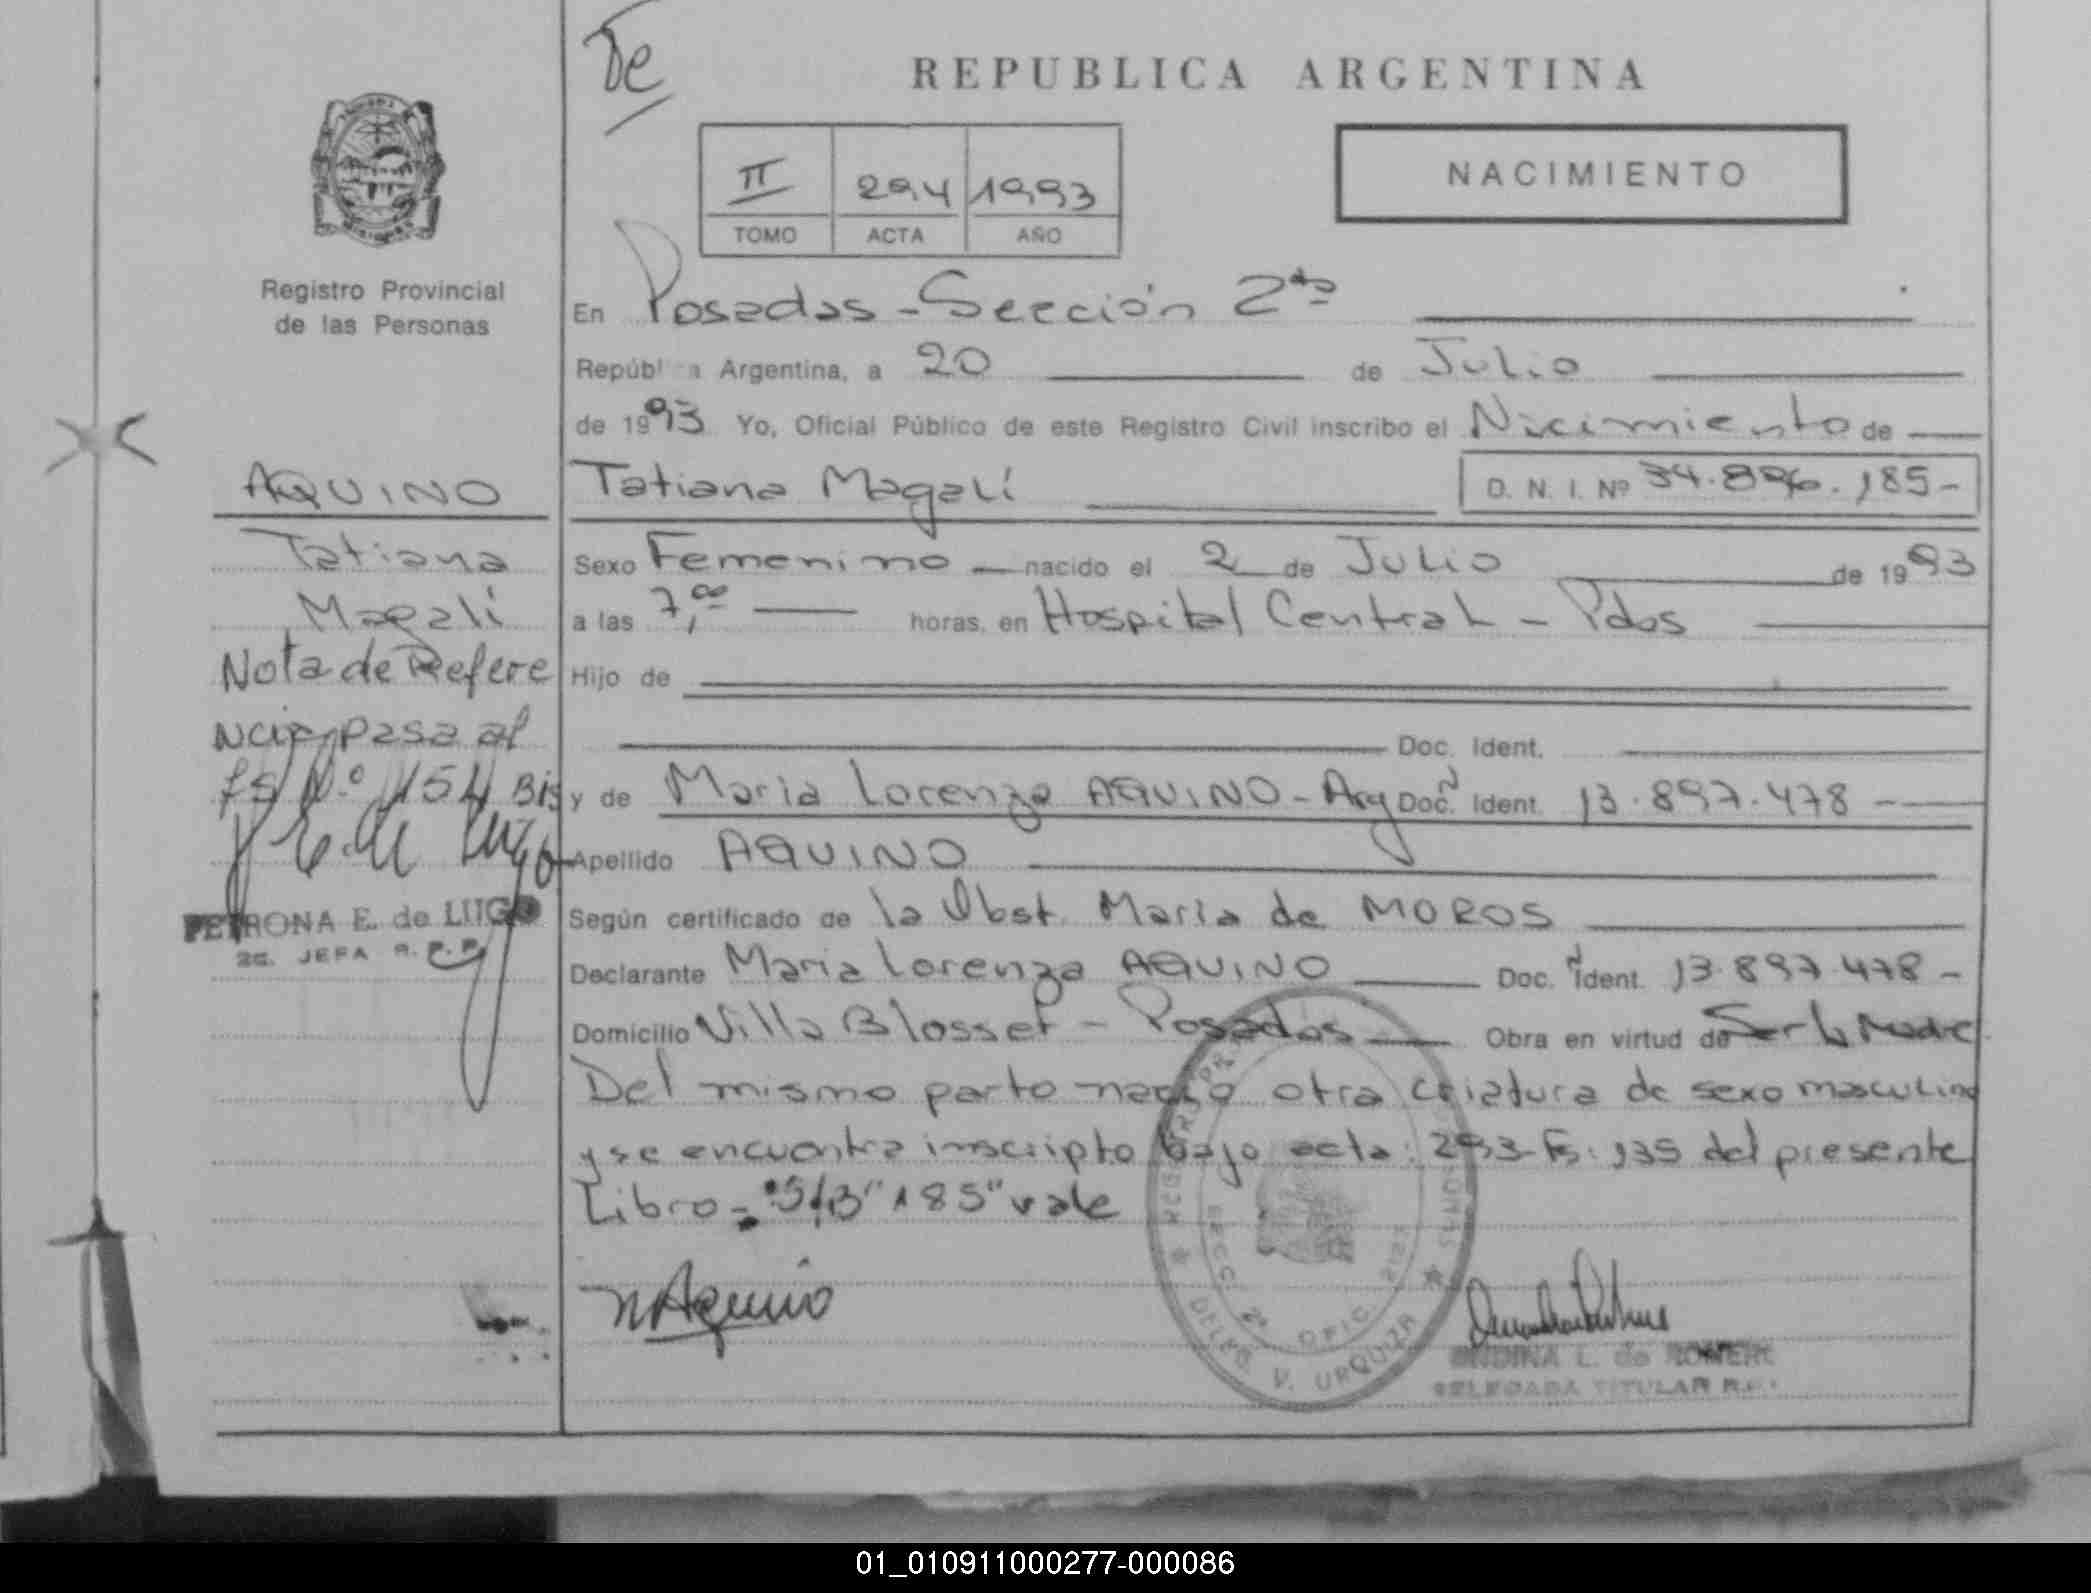 De
REPUBLICA ARGENTINA
II 294 1993
TOMO ACTA AÑO
NACIMIENTO
Registro Provincial
de las Personas
En Posadas - Sección 2da
República Argentina, a 20 de Julio
de 1993 Yo, Oficial Público de este Registro Civil inscribo el Nacimiento de
AQUINO
Tatiana
Magalí
Nota de Refere
ncia pasa al
fs Nº 154 Bis
PETRONA E. de LUGO
JEFA R.P.P.
Tatiana Magalí D. N. I. Nº 34.896.185-
Sexo Femenino nacido el 2 de Julio de 1993
a las 7,00 horas, en Hospital Central - Pdas
Hijo de
Doc. Ident.
y de Maria Lorenza AQUINO - Arg Doc. Ident. 13.897.478 -
Apellido AQUINO
Según certificado de la Obst. Maria de MOROS
Declarante Maria Lorenza AQUINO Doc. Ident. 13.897.478 -
Domicilio Villa Blosset - Posadas Obra en virtud de Ser la Madre
Del mismo parto nació otra criatura de sexo masculino
y se encuentra inscripto bajo acta: 293 Fs: 135 del presente
Libro = "185" vale
M Aquino
SECC. 2ª OFIC. 2123
DELEG. V. URQUIZA
ONDINA L. de ROMERO
DELEGADA TITULAR R.P.
01_010911000277-000086